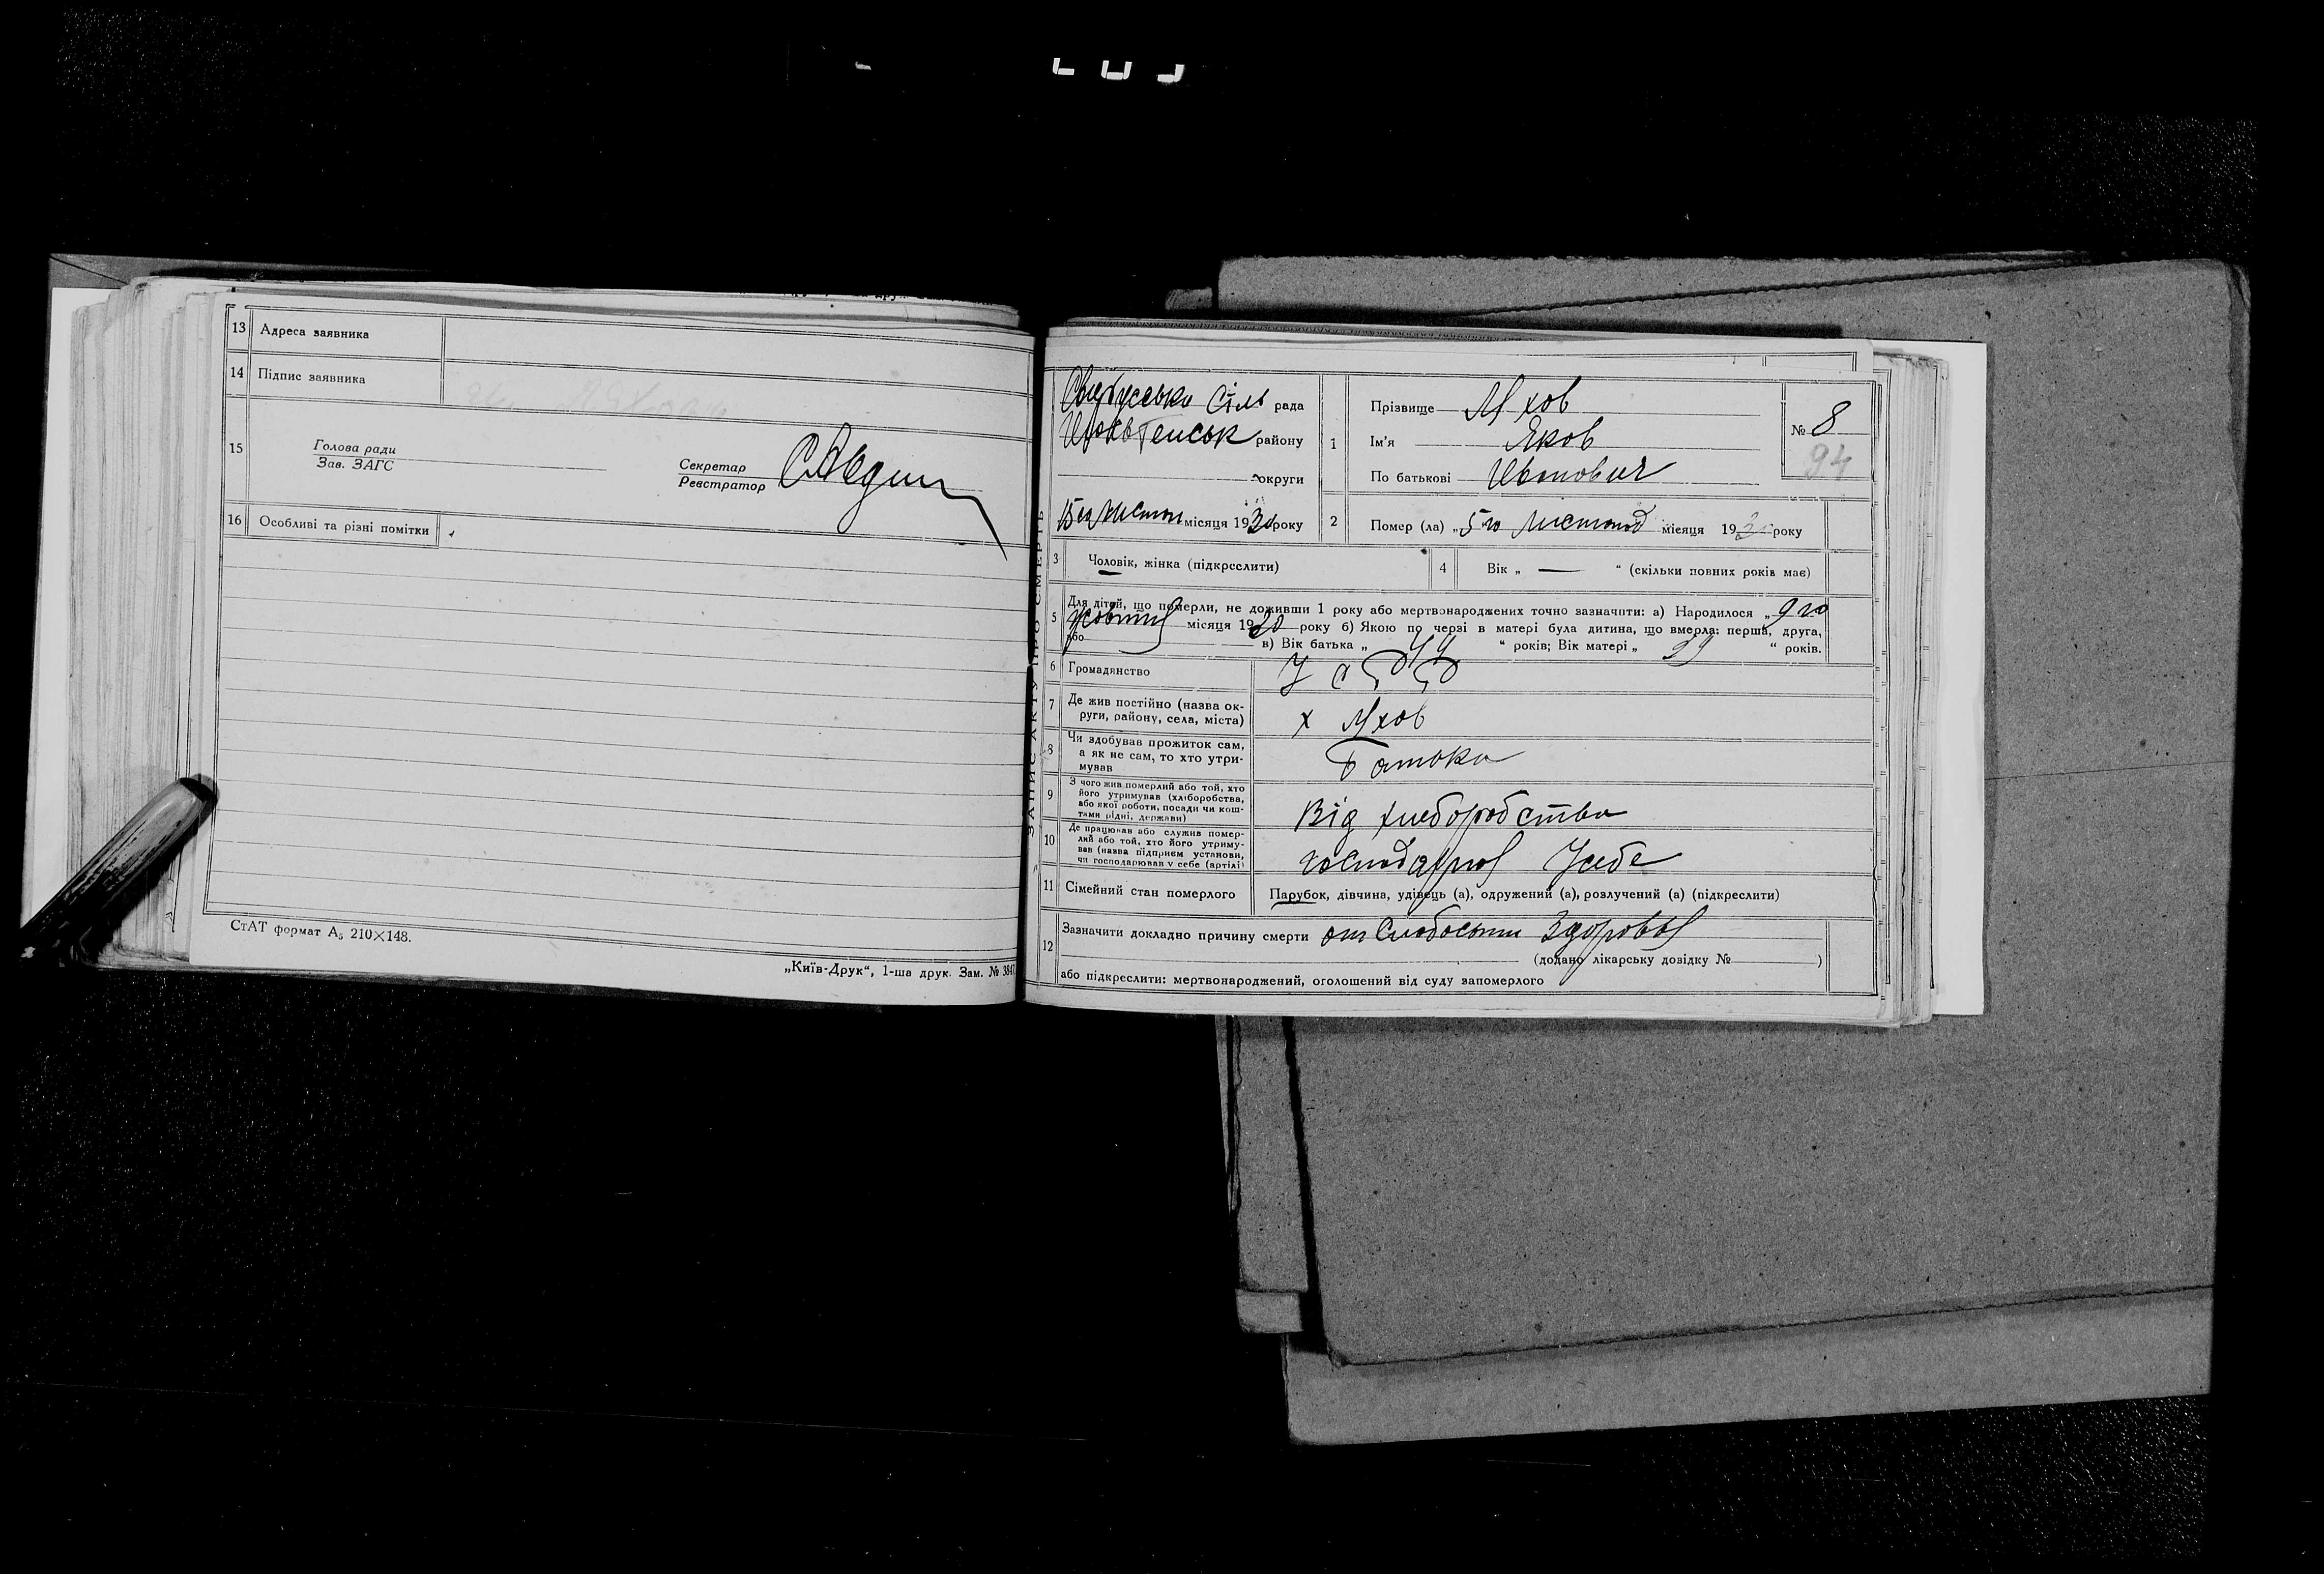 13 Адреса заявника
14 Підпис заявника
15 Голова ради
Зав. ЗАГС
Секретар
Реєстратор
16 Особливі та різні помітки
СтАТ формат А₅ 210×148.
„Київ-Друк“, 1-ша друк. Зам. № 3847
ЗАПИС АКТУ ПРО СМЕРТЬ
сіль рада
району
округи
15го листоп місяця 1930 року
1 Прізвище Мхов
Ім'я Яков
По батькові Іванович
№ 8
94
2 Помер (ла) „5го листопад місяця 193 року
3 Чоловік, жінка (підкреслити)
4 Вік „ — “ (скільки повних років має)
5 Для дітей, що померли, не доживши 1 року або мертвонароджених точно зазначити: а) Народилося „9го
жовтня місяця 1930 року б) Якою по черзі в матері була дитина, що вмерла: перша, друга,
або в) Вік батька „ 44 “ років; Вік матері „ 39 “ років.
6 Громадянство УСРР
7 Де жив постійно (назва ок-
руги, району, села, міста) х Мхов
8 Чи здобував прожиток сам,
а як не сам, то хто утри-
мував Батько
9 З чого жив померлий або той, хто
його утримував (хліборобства,
або якої роботи, посади чи кош-
тами рідні, держави) Від хлеборобства
10 Де працював або служив помер-
лий або той, хто його утриму-
вав (назва підприєм установи,
чи господарював у себе (артілі) господарюв Усебе
11 Сімейний стан померлого Парубок, дівчина, удівець (а), одружений (а), розлучений (а) (підкреслити)
12 Зазначити докладно причину смерти от слабости здоровья
(додано лікарську довідку № )
або підкреслити: мертвонароджений, оголошений від суду запомерлого